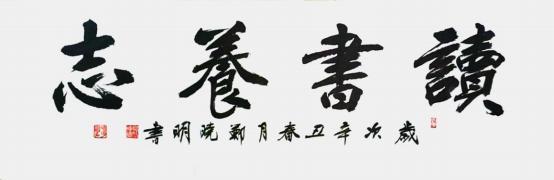 讀書養志
歲次辛丑春月鄭曉明書